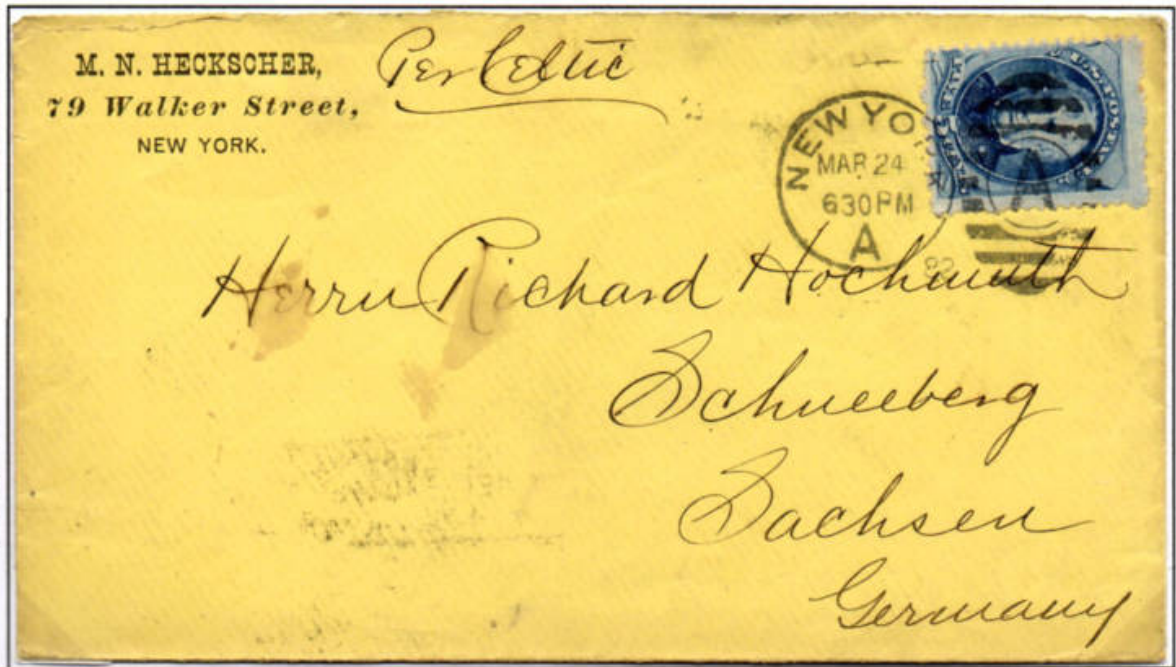 M. N. HECKSCHER,
79 Walker Street,
NEW YORK.
Per Celtic
NEW YORK
MAR 24
630PM
A
82
A
Herrn Richard Hochmuth
Schneeberg
Sachsen
Germany